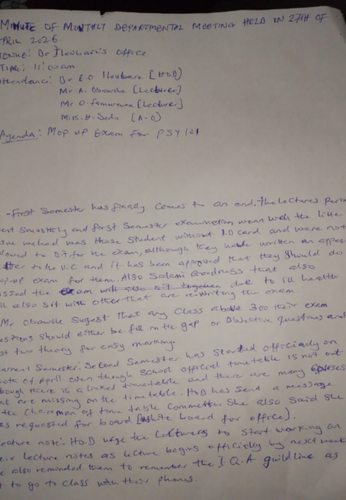 MINUTE OF MONTHLY DEPARTMENTAL MEETING HELD ON 27TH OF
APRIL 2026.
VENUE: Dr Office
TIME: 11:00am
Attendance: Dr E.O [HOD]
Mr A. [Lecturer]
Mr O. [Lecturer]
[A.O]
Agenda: MOP UP Exam for PSY 121
- First Semester has finally comes to an end, the lectures
Smoothly and first Semester examination went well the little
we had was those Student without ID card and were not
to sit for the exam, although they have written an
letter to the V.C and it has been approved that they should do
exam for them. Also Salami Goodness that also
missed the exam due to ill health
also sit with other that are rewriting the exam
Mr Suggest that any Class above 300 their exam
questions should either be fill in the gap or Objective questions and
just two theory for easy marking
Current Semester: Second Semester has started officially on
of April even though School official time table is not out
though there is a timetable and there are many courses
that are missing on the timetable. HOD has send a message
the Chairman of time table Committee. She also said she
has requested for board [white board for office].
Lecture note: HOD urge the lecturers to start working on
their lecture notes as lecture begins officially by next week
She also reminded them to remember the I.Q.A guildline as
to go to class with their phones.